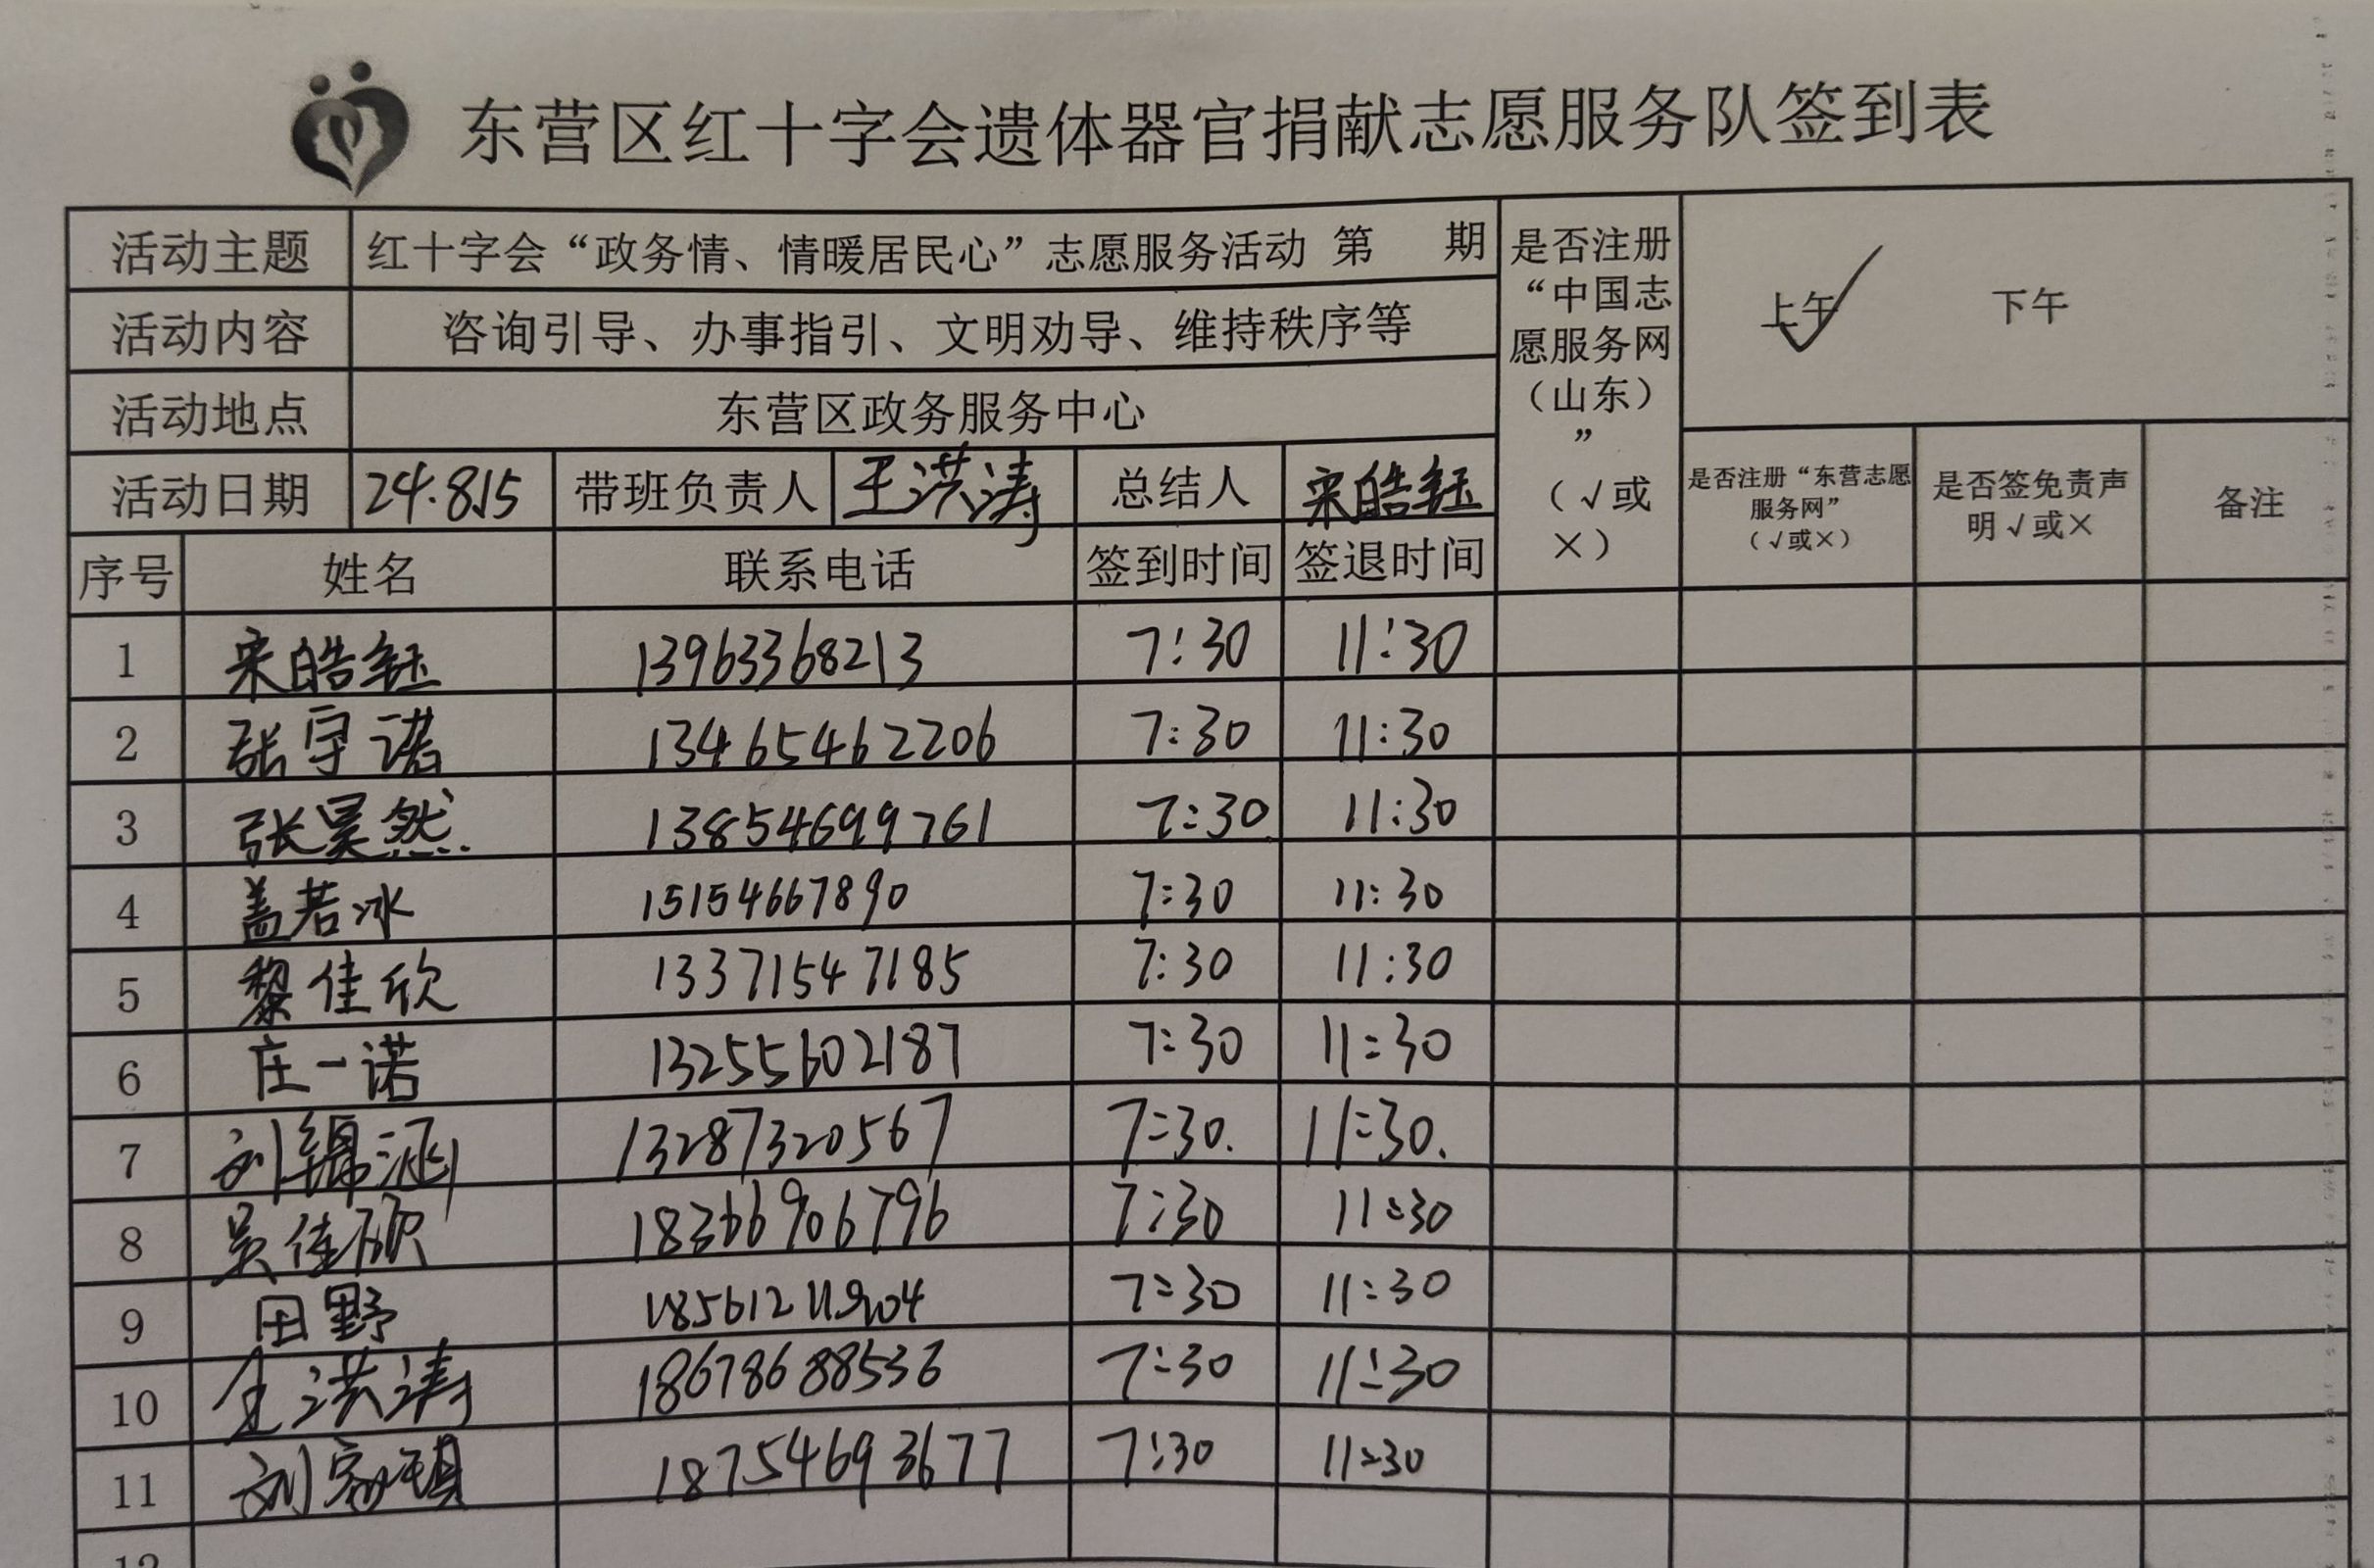 东营区红十字会遗体器官捐献志愿服务队签到表
活动主题 红十字会“政务情、情暖居民心”志愿服务活动 第 期
活动内容 咨询引导、办事指引、文明劝导、维持秩序等
活动地点 东营区政务服务中心
活动日期 24.8.15 带班负责人 王洪涛 总结人 宋皓钰
是否注册“中国志愿服务网（山东）”（√或×）
上午 √ 下午
是否注册“东营志愿服务网”（√或×） 是否签免责声明√或× 备注
序号 姓名 联系电话 签到时间 签退时间
1 宋皓钰 13963368213 7:30 11:30
2 张宇诺 13465462206 7:30 11:30
3 张昊然 13854699761 7:30 11:30
4 盖若冰 15154667890 7:30 11:30
5 黎佳欣 13371547185 7:30 11:30
6 庄一诺 13255602187 7:30 11:30
7 刘锦涵 13287320567 7:30. 11:30.
8 吴佳颀 18366906796 7:30 11:30
9 田野 7:30 11:30
10 王洪涛 18678688536 7:30 11:30
11 刘 18754693677 7:30 11:30
12